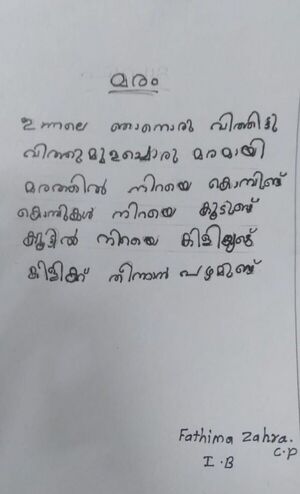 മരം
ഇന്നലെ ഞാനൊരു വിത്തിട്ടു
വിത്തുമുളച്ചൊരു മരമായി
മരത്തിൽ നിറയെ കൊമ്പുണ്ട്
കൊമ്പുകൾ നിറയെ കൂടുണ്ട്
കൂട്ടിൽ നിറയെ കിളിയുണ്ട്
കിളിക്ക് തിന്നാൻ പഴമുണ്ട്
Fathima Zahra.
C.P
I.B